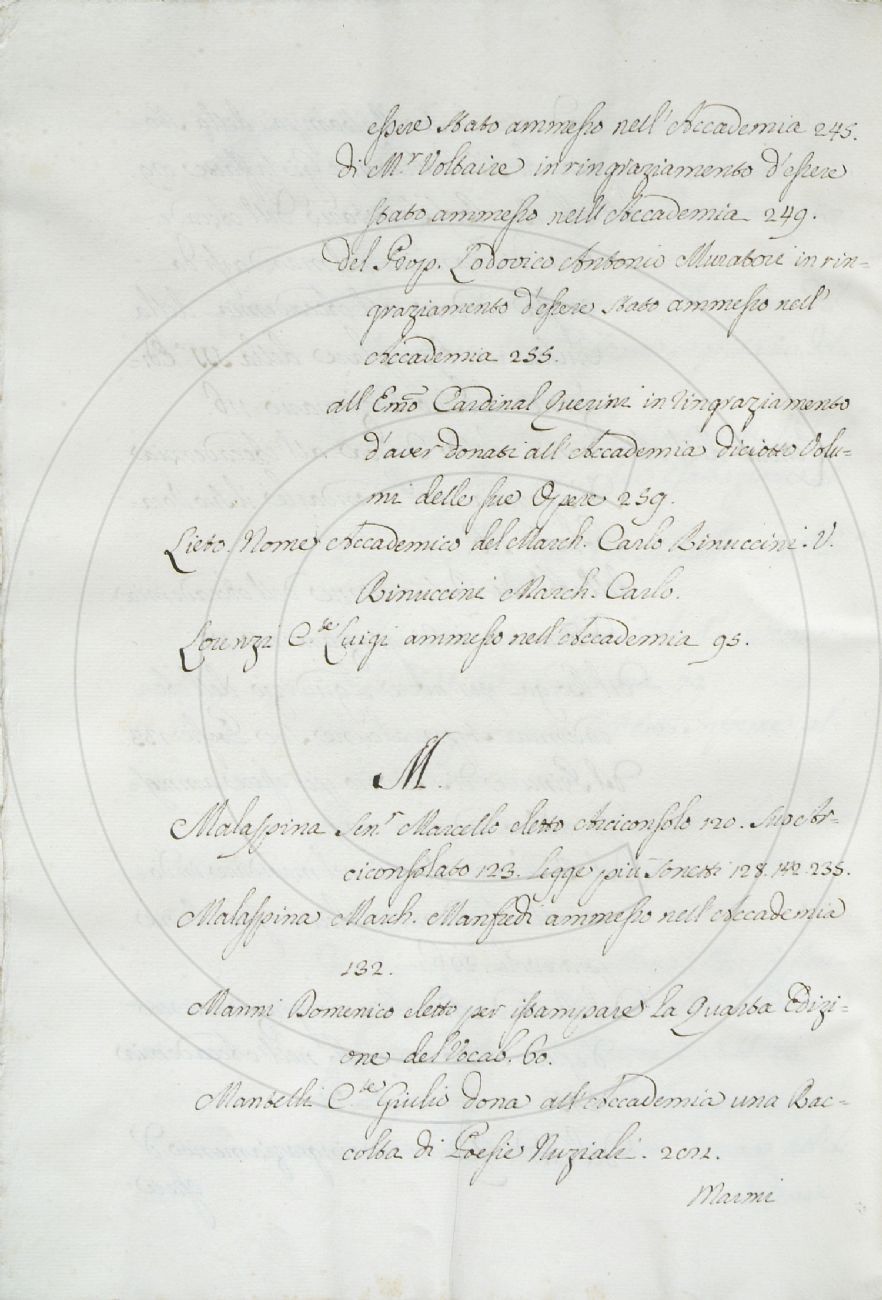 essere stato ammesso nell'Accademia 245.
di M.r Voltaire in ringraziamento d'essere
stato ammesso nell'Accademia 249.
del Prop. Lodovico Antonio Muratori in rin=
graziamento d'essere stato ammesso nell'
Accademia 255.
all'Emo Cardinal Querini in ringraziamento
d'aver donati all'Accademia diciotto Volu=
mi delle sue Opere 259.
Lieto Nome Accademico del March. Carlo Rinuccini. V.
Rinuccini March. Carlo.
Lorenzi C.te Luigi ammesso nell'Accademia 95.
M.
Malaspina Sen.r Marcello eletto Arciconsolo 120. Suo Ar=
ciconsolato 123. Legge più Sonetti 128. 142. 235.
Malaspina March. Manfredi ammesso nell'Accademia
132.
Manni Domenico eletto per istampare la Quarta Edizi=
one del Vocab. 60.
Mantelli C.te Giulio dona all'Accademia una Rac=
colta di Poesie Nuziali.
Marmi